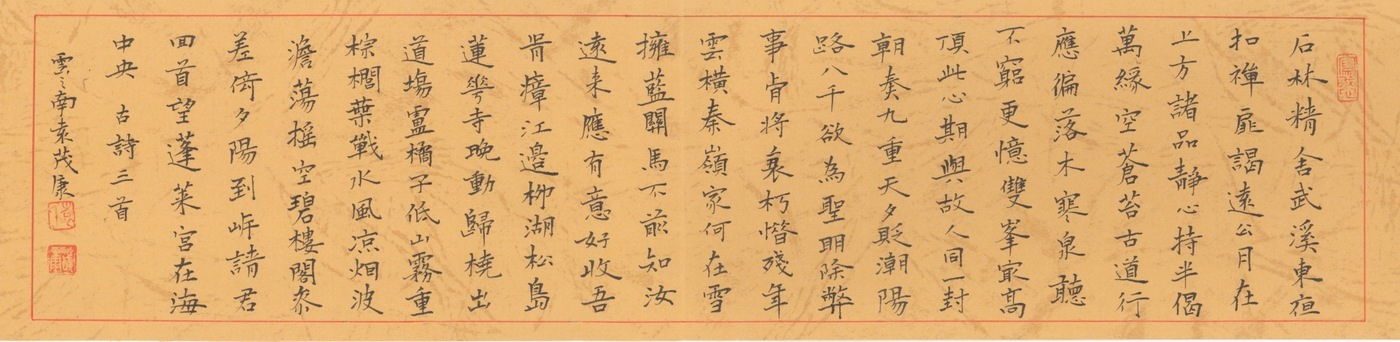 石林精舍武溪東夜
扣禪扉謁遠公月在
上方諸品靜心持半偈
萬緣空蒼苔古道行
應徧落木寒泉聽
不窮更憶雙峯最高
頂此心期與故人同一封
朝奏九重天夕貶潮陽
路八千欲為聖明除弊
事肯將衰朽惜殘年
雲橫秦嶺家何在雪
擁藍關馬不前知汝
遠来應有意好收吾
骨瘴江邊柳湖松島
蓮華寺晚動歸橈出
道場盧橘子低山霧重
棕櫚葉戰水風凉烟波
澹蕩搖空碧樓閣參
差倚夕陽到岸請君
回首望蓬萊宮在海
中央 古詩三首
雲之南袁茂康